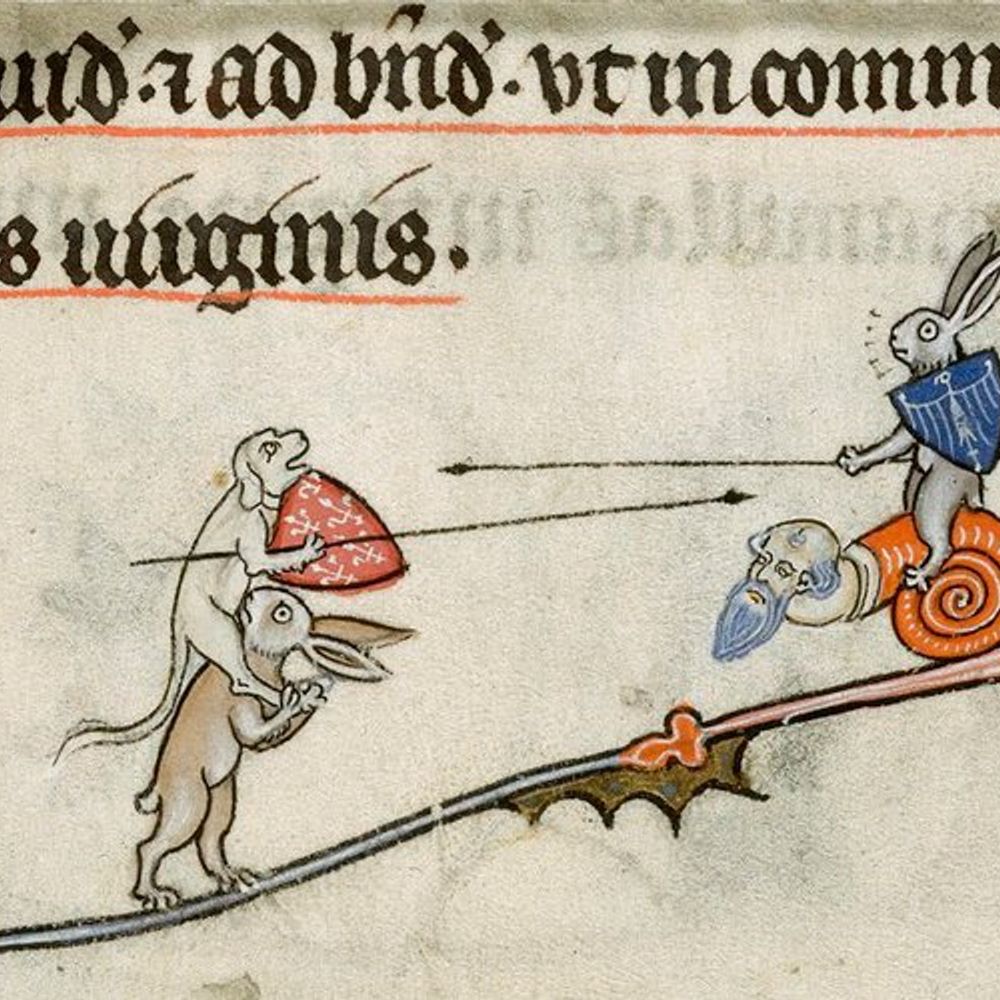 uid᷒. ⁊ ad bñd᷒. vt in comm
s uirginis.